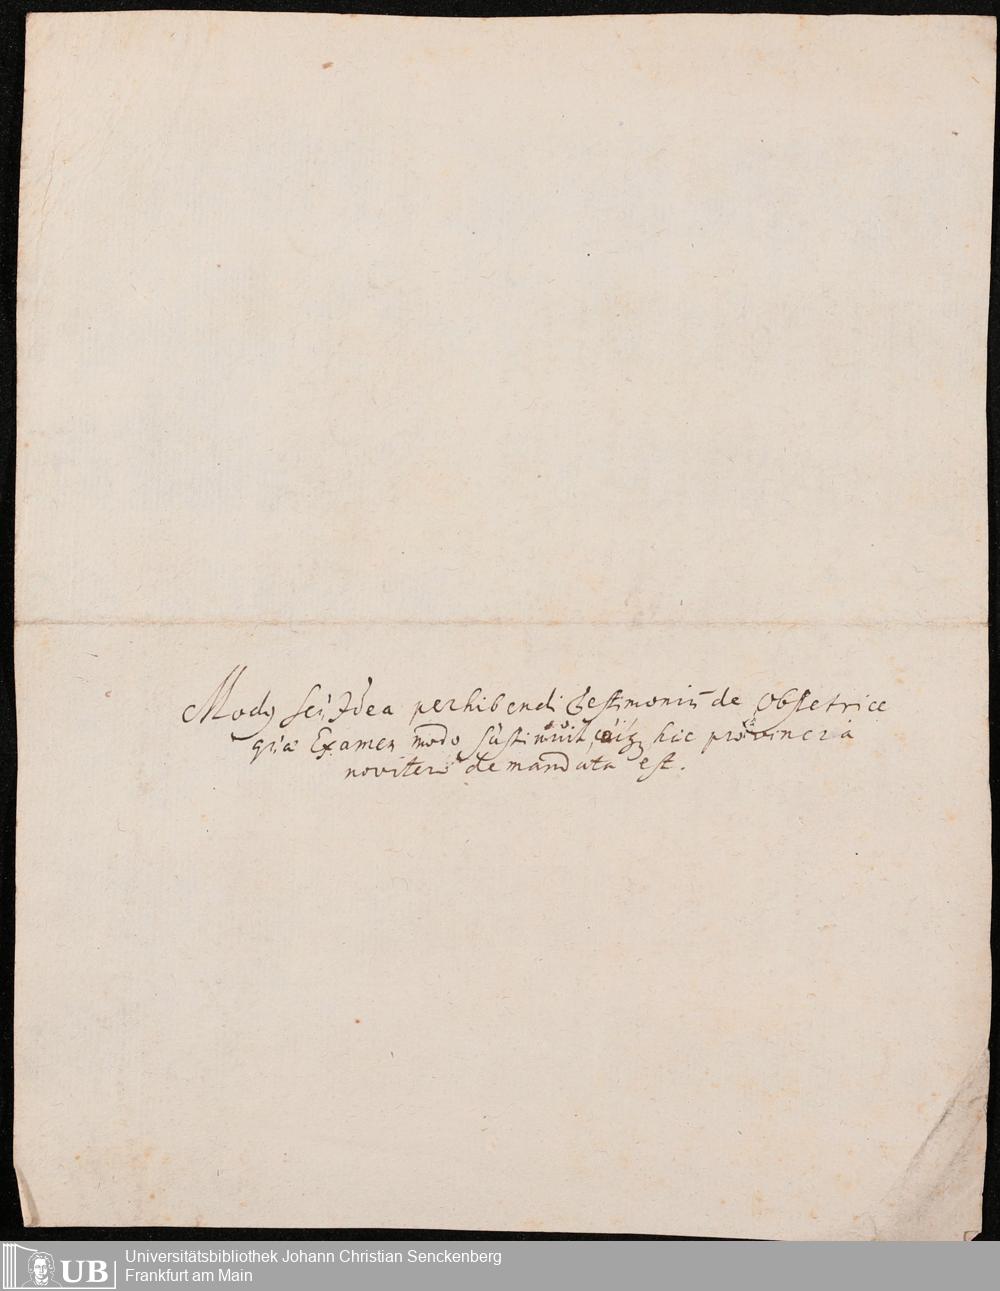 Modꝯ seu Idea perhibendi Testimoniū de Obstetrice
quæ Examen modo sustinuit, huic provincia
noviter demandata est.
UB
Universitätsbibliothek Johann Christian Senckenberg
Frankfurt am Main